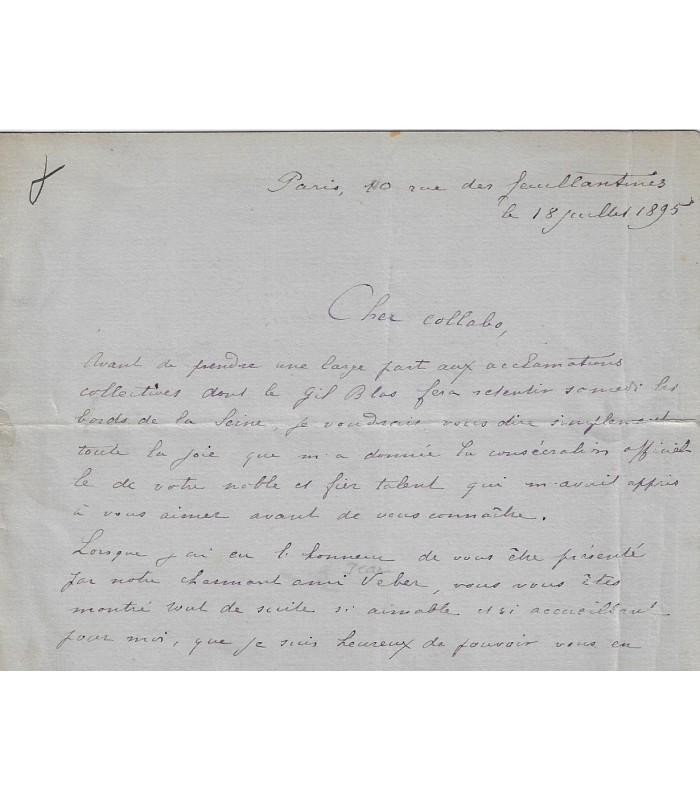 Paris, 10 rue des feuillantines
le 18 juillet 1895
Cher collabo,
Avant de prendre une large part aux acclamations
collectives dont le Gil Blas fera retentir samedi les
bords de la Seine, je voudrais vous dire simplement
toute la joie que m'a donnée la consécration officiel
le de votre noble et fier talent qui m'avait appris
à vous aimer avant de vous connaître.
Lorsque j'ai eu l'honneur de vous être présenté
Jean
par notre charmant ami Veber, vous vous êtes
montré tout de suite si aimable et si accueillant
pour moi, que je suis heureux de pouvoir vous en